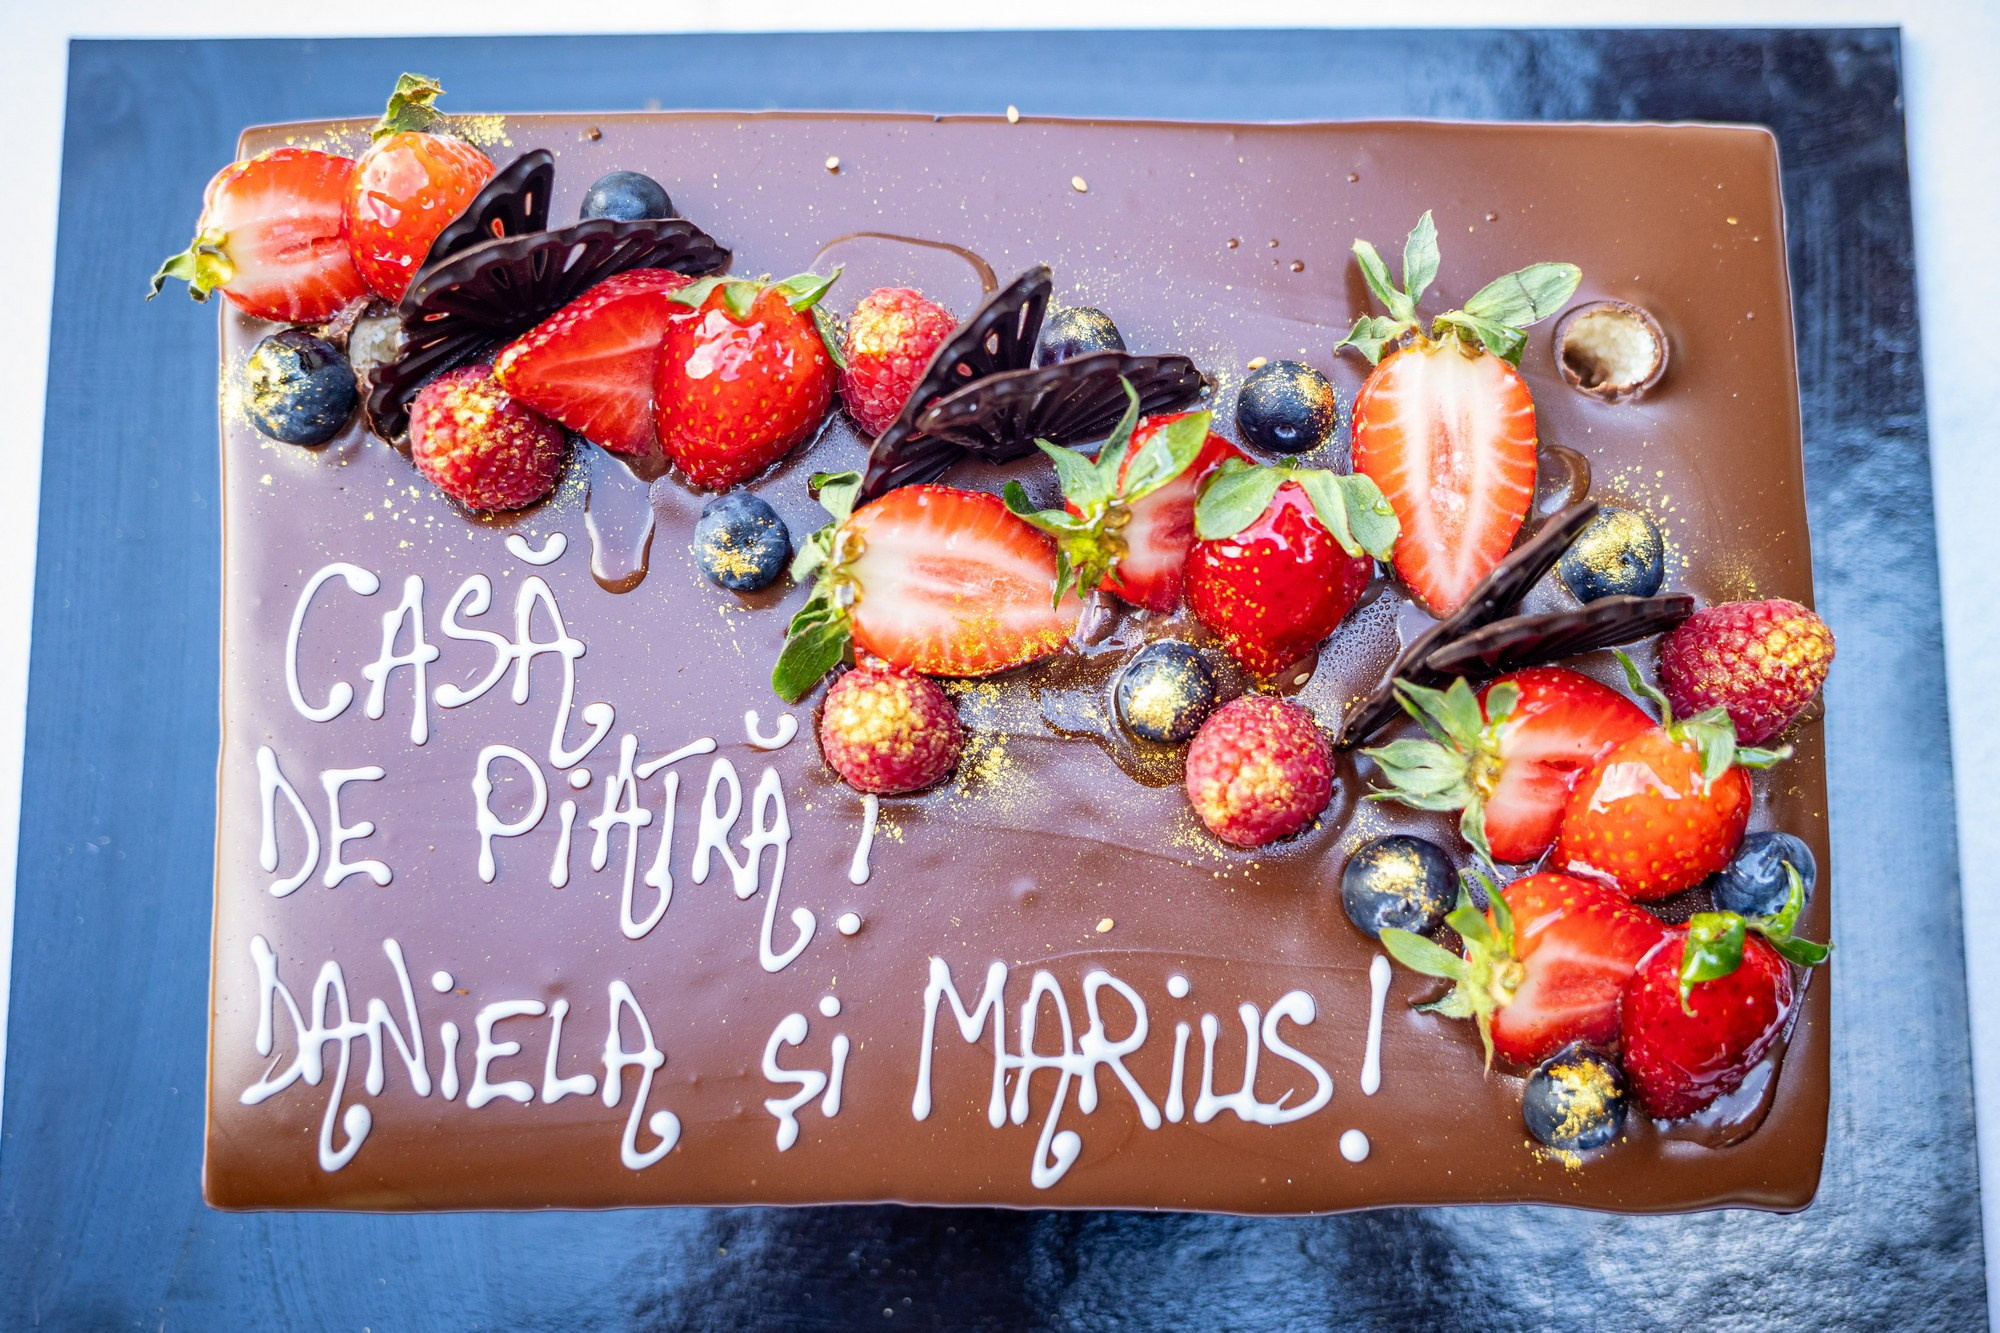 CASĂ
DE PiATRĂ!
DANiELA şi MARiUS!